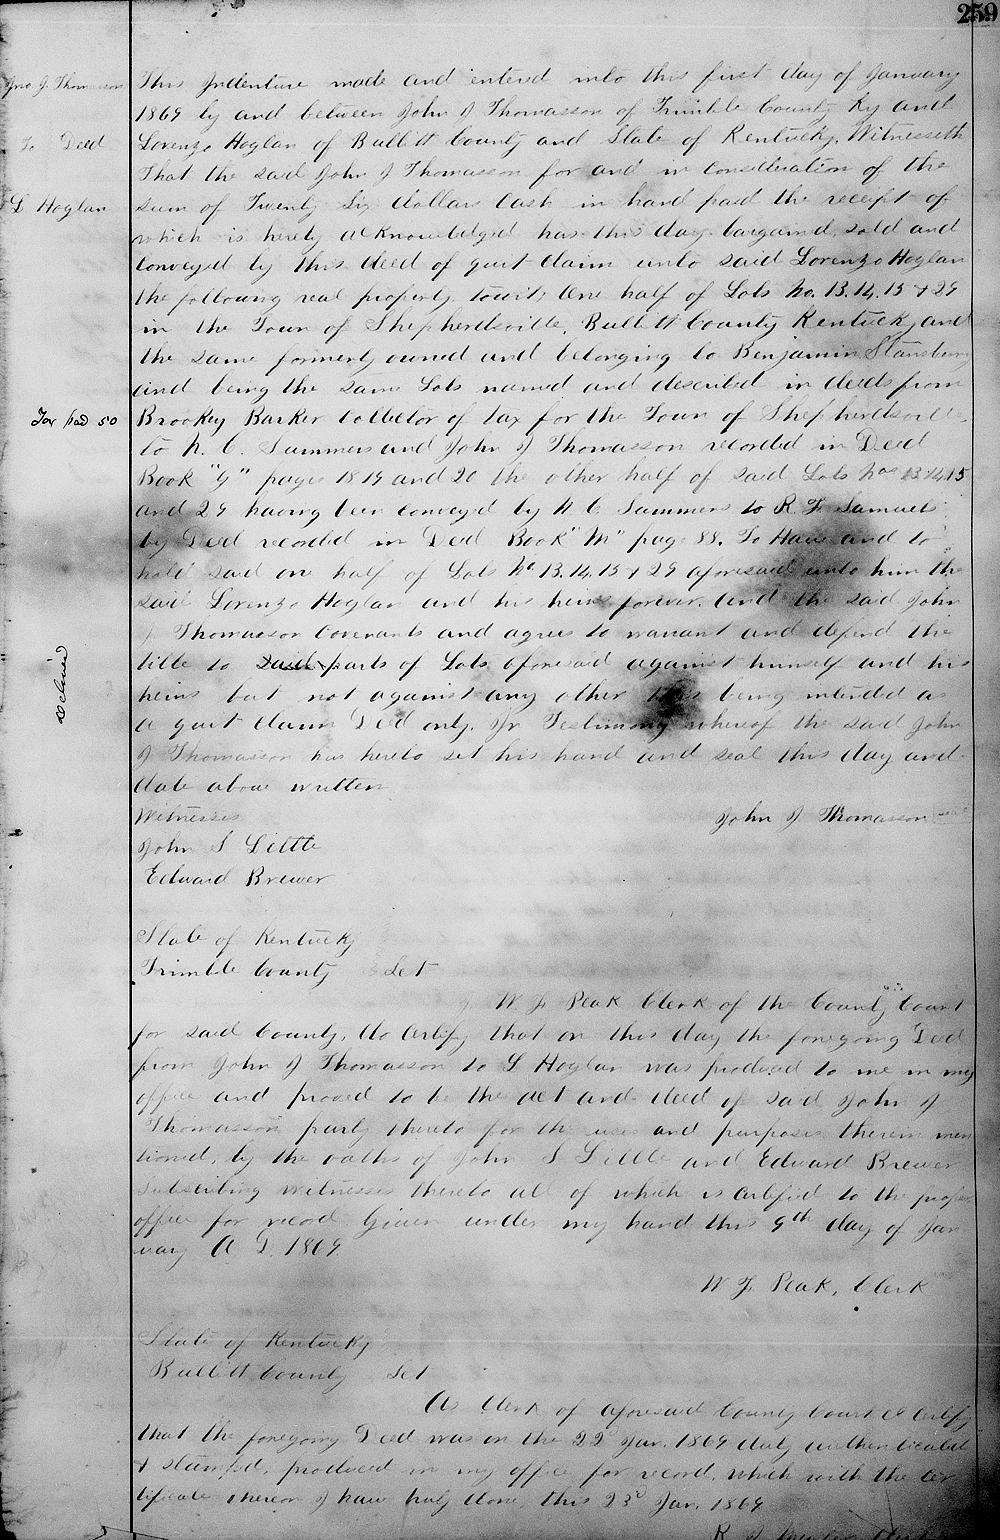 259
Jno J. Thomasson
To Deed
L Hoglan
This Indenture made and entered into this first day of January
1869 by and between John J Thomasson of Trimble County Ky and
Lorenzo Hoglan of Bullitt County and State of Kentucky, Witnesseth
That the said John J Thomasson for and in consideration of the
sum of Twenty Six dollars Cash in hand paid the receipt of
which is hereby acknowledged has this day bargained, sold and
Conveyed by this deed of quit claim unto said Lorenzo Hoglan
the following real property, towit; One half of Lots No. 13.14.15 + 29
in the Town of Shepherdsville, Bullitt County Kentucky and
the same formerly owned and belonging to Benjamin Stansberry
and being the same Lots named and described in deeds from
Tax paid 50
Brookey Barker Collector of tax for the Town of Shepherdsville
to N. C. Summers and John J Thomasson recorded in Deed
Book "G" pages 18 19 and 20 the other half of said Lots Nos 13.14.15
and 29 having been conveyed by N C Summers to R. F. Samuels
by Deed recorded in Deed Book "M" page 88. To Have and to
hold said one half of Lots No 13.14.15 + 29 aforesaid unto him the
said Lorenzo Hoglan and his heirs forever. And the said John
J Thomasson Covenants and agrees to warrant and defend the
title to said parts of Lots aforesaid against himself and his
heirs but not against any other this being intended as
a quit claim Deed only. In Testimony whereof the said John
J Thomasson has hereto set his hand and seal this day and
date above written
Witnesses
John J Thomasson seal
John S Little
Edward Brewer
State of Kentucky
Trimble County Sct
I W J Peak Clerk of the County Court
for said County, do certify that on this day the foregoing Deed
from John J Thomasson to L Hoglan was produced to me in my
office and proved to be the act and deed of said John J
Thomasson party thereto for the uses and purposes therein men
tioned, by the oaths of John S Little and Edward Brewer
subscribing witnesses thereto all of which is certified to the proper
office for record. Given under my hand this 9th day of Jan
uary A D. 1869
W J Peak, Clerk
State of Kentucky
Bullitt County Sct
As Clerk of aforesaid County Court I certify
that the foregoing Deed was on the 22d Jan. 1869 duly authenticated
+ stamped, produced in my office for record, which with the cer
tificate thereon I have truly done, this 23d Jan. 1869